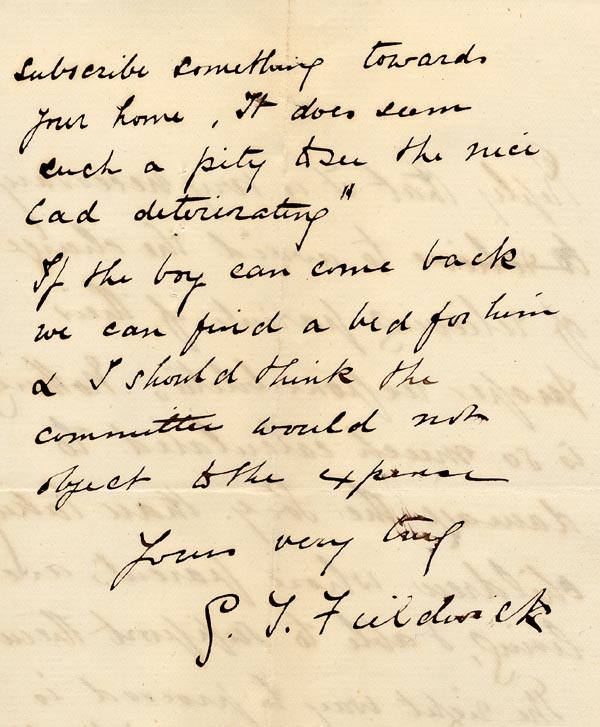 subscribe something towards
your home, It does seem
such a pity to see the nice
lad deteriorating"
If the boy can come back
we can find a bed for him
& I should think the
committee would not
object to the expense
Yours very truly
G. T. Fieldwick